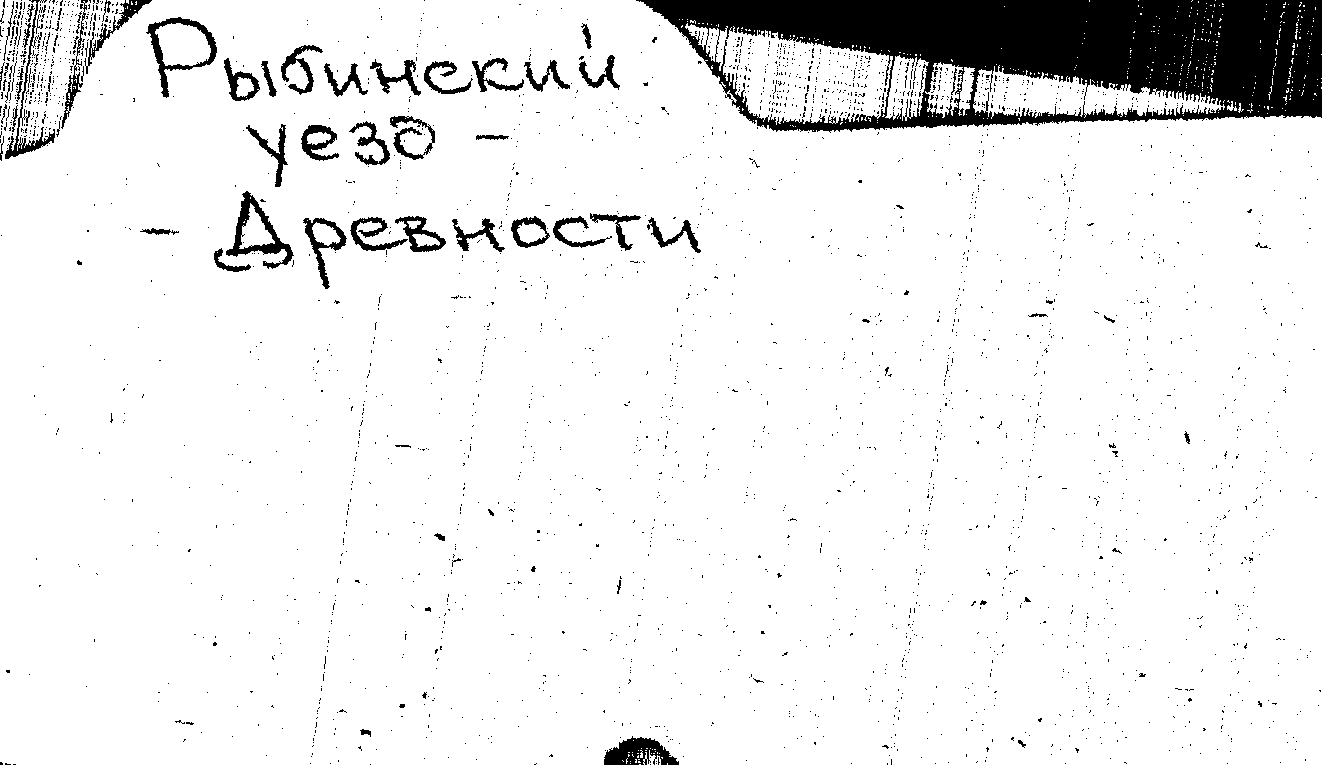 Рыбинский
уезд -
- Древности